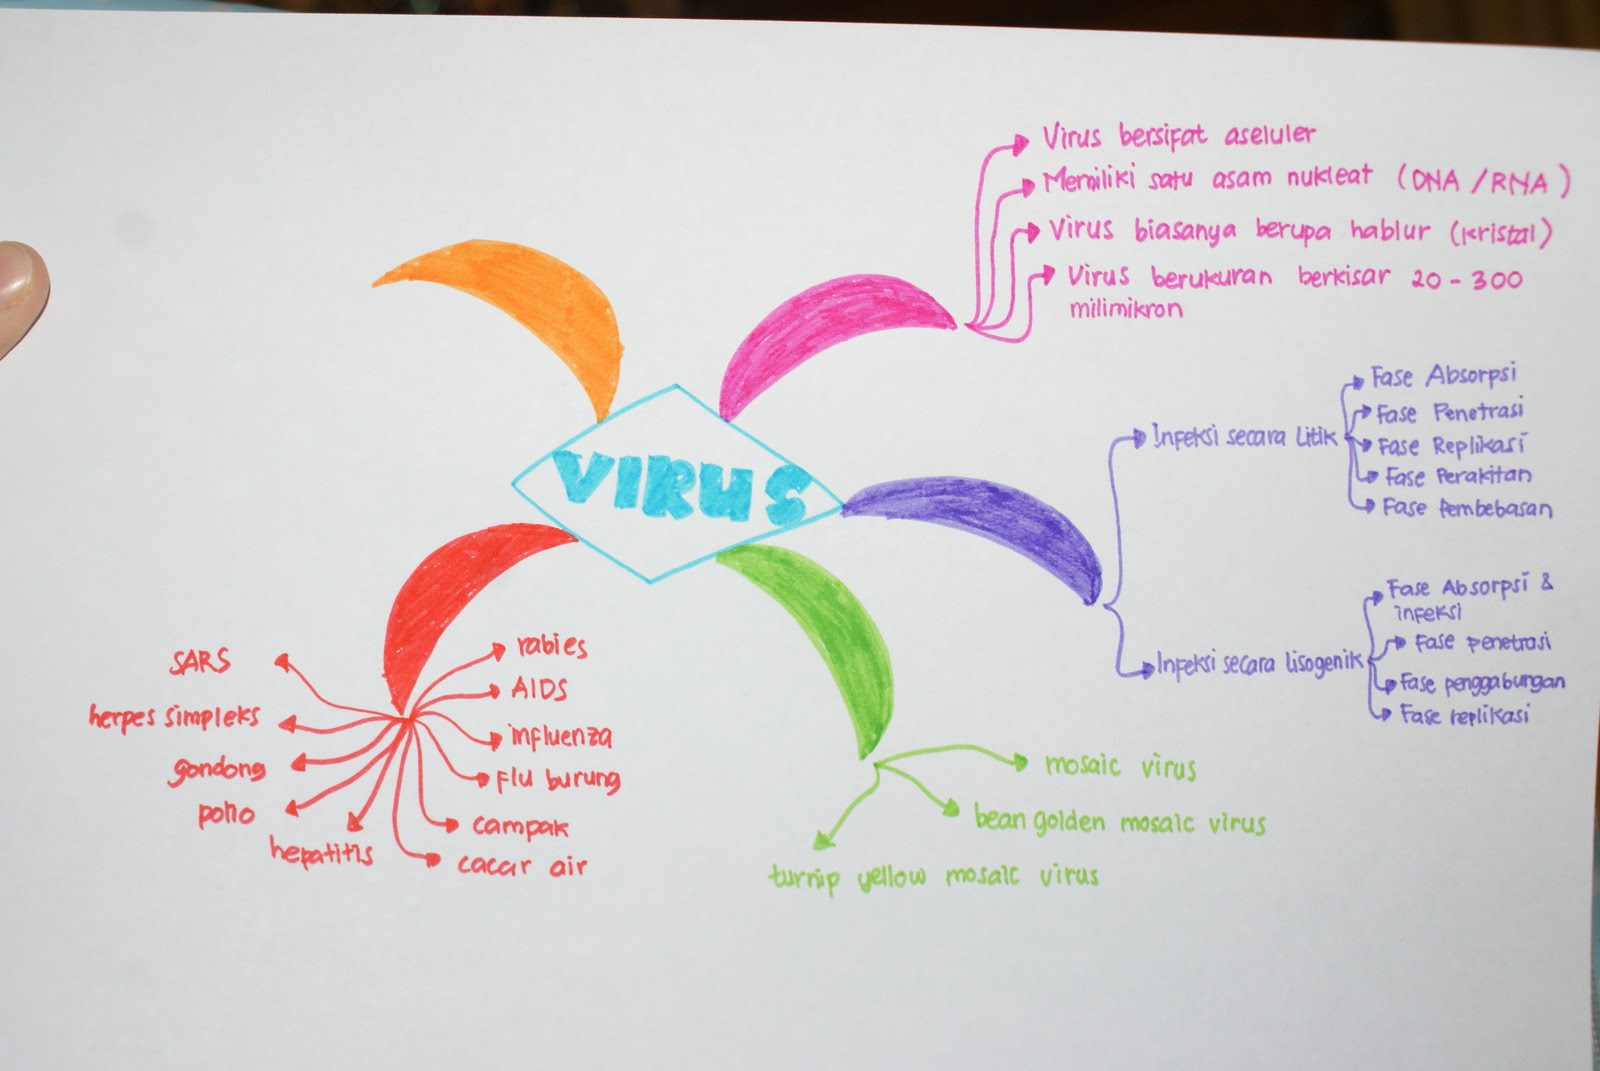 VIRUS
Virus bersifat aseluler
Memiliki satu asam nukleat (DNA / RNA)
Virus biasanya berupa hablur (kristal)
Virus berukuran berkisar 20 - 300
milimikron
Infeksi secara Litik
Fase Absorpsi
Fase Penetrasi
Fase Replikasi
Fase Perakitan
Fase Pembebasan
Infeksi secara Lisogenik
Fase Absorpsi &
infeksi
Fase penetrasi
Fase penggabungan
Fase replikasi
mosaic virus
bean golden mosaic virus
turnip yellow mosaic virus
rabies
AIDS
influenza
flu burung
campak
cacar air
SARS
herpes simpleks
gondong
polio
hepatitis